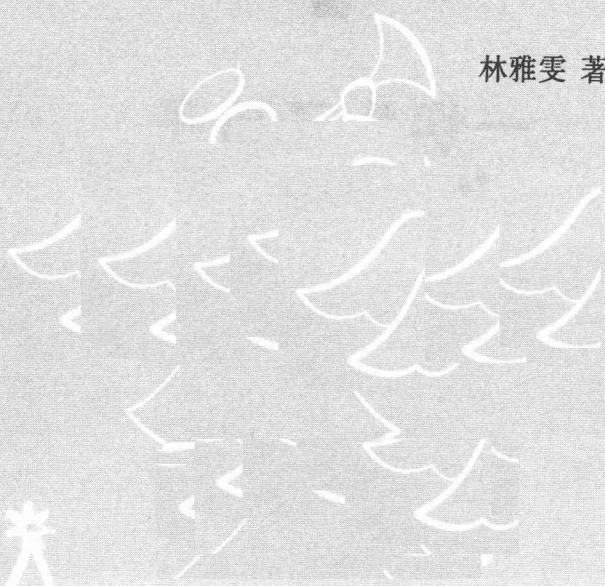 林雅雯 著